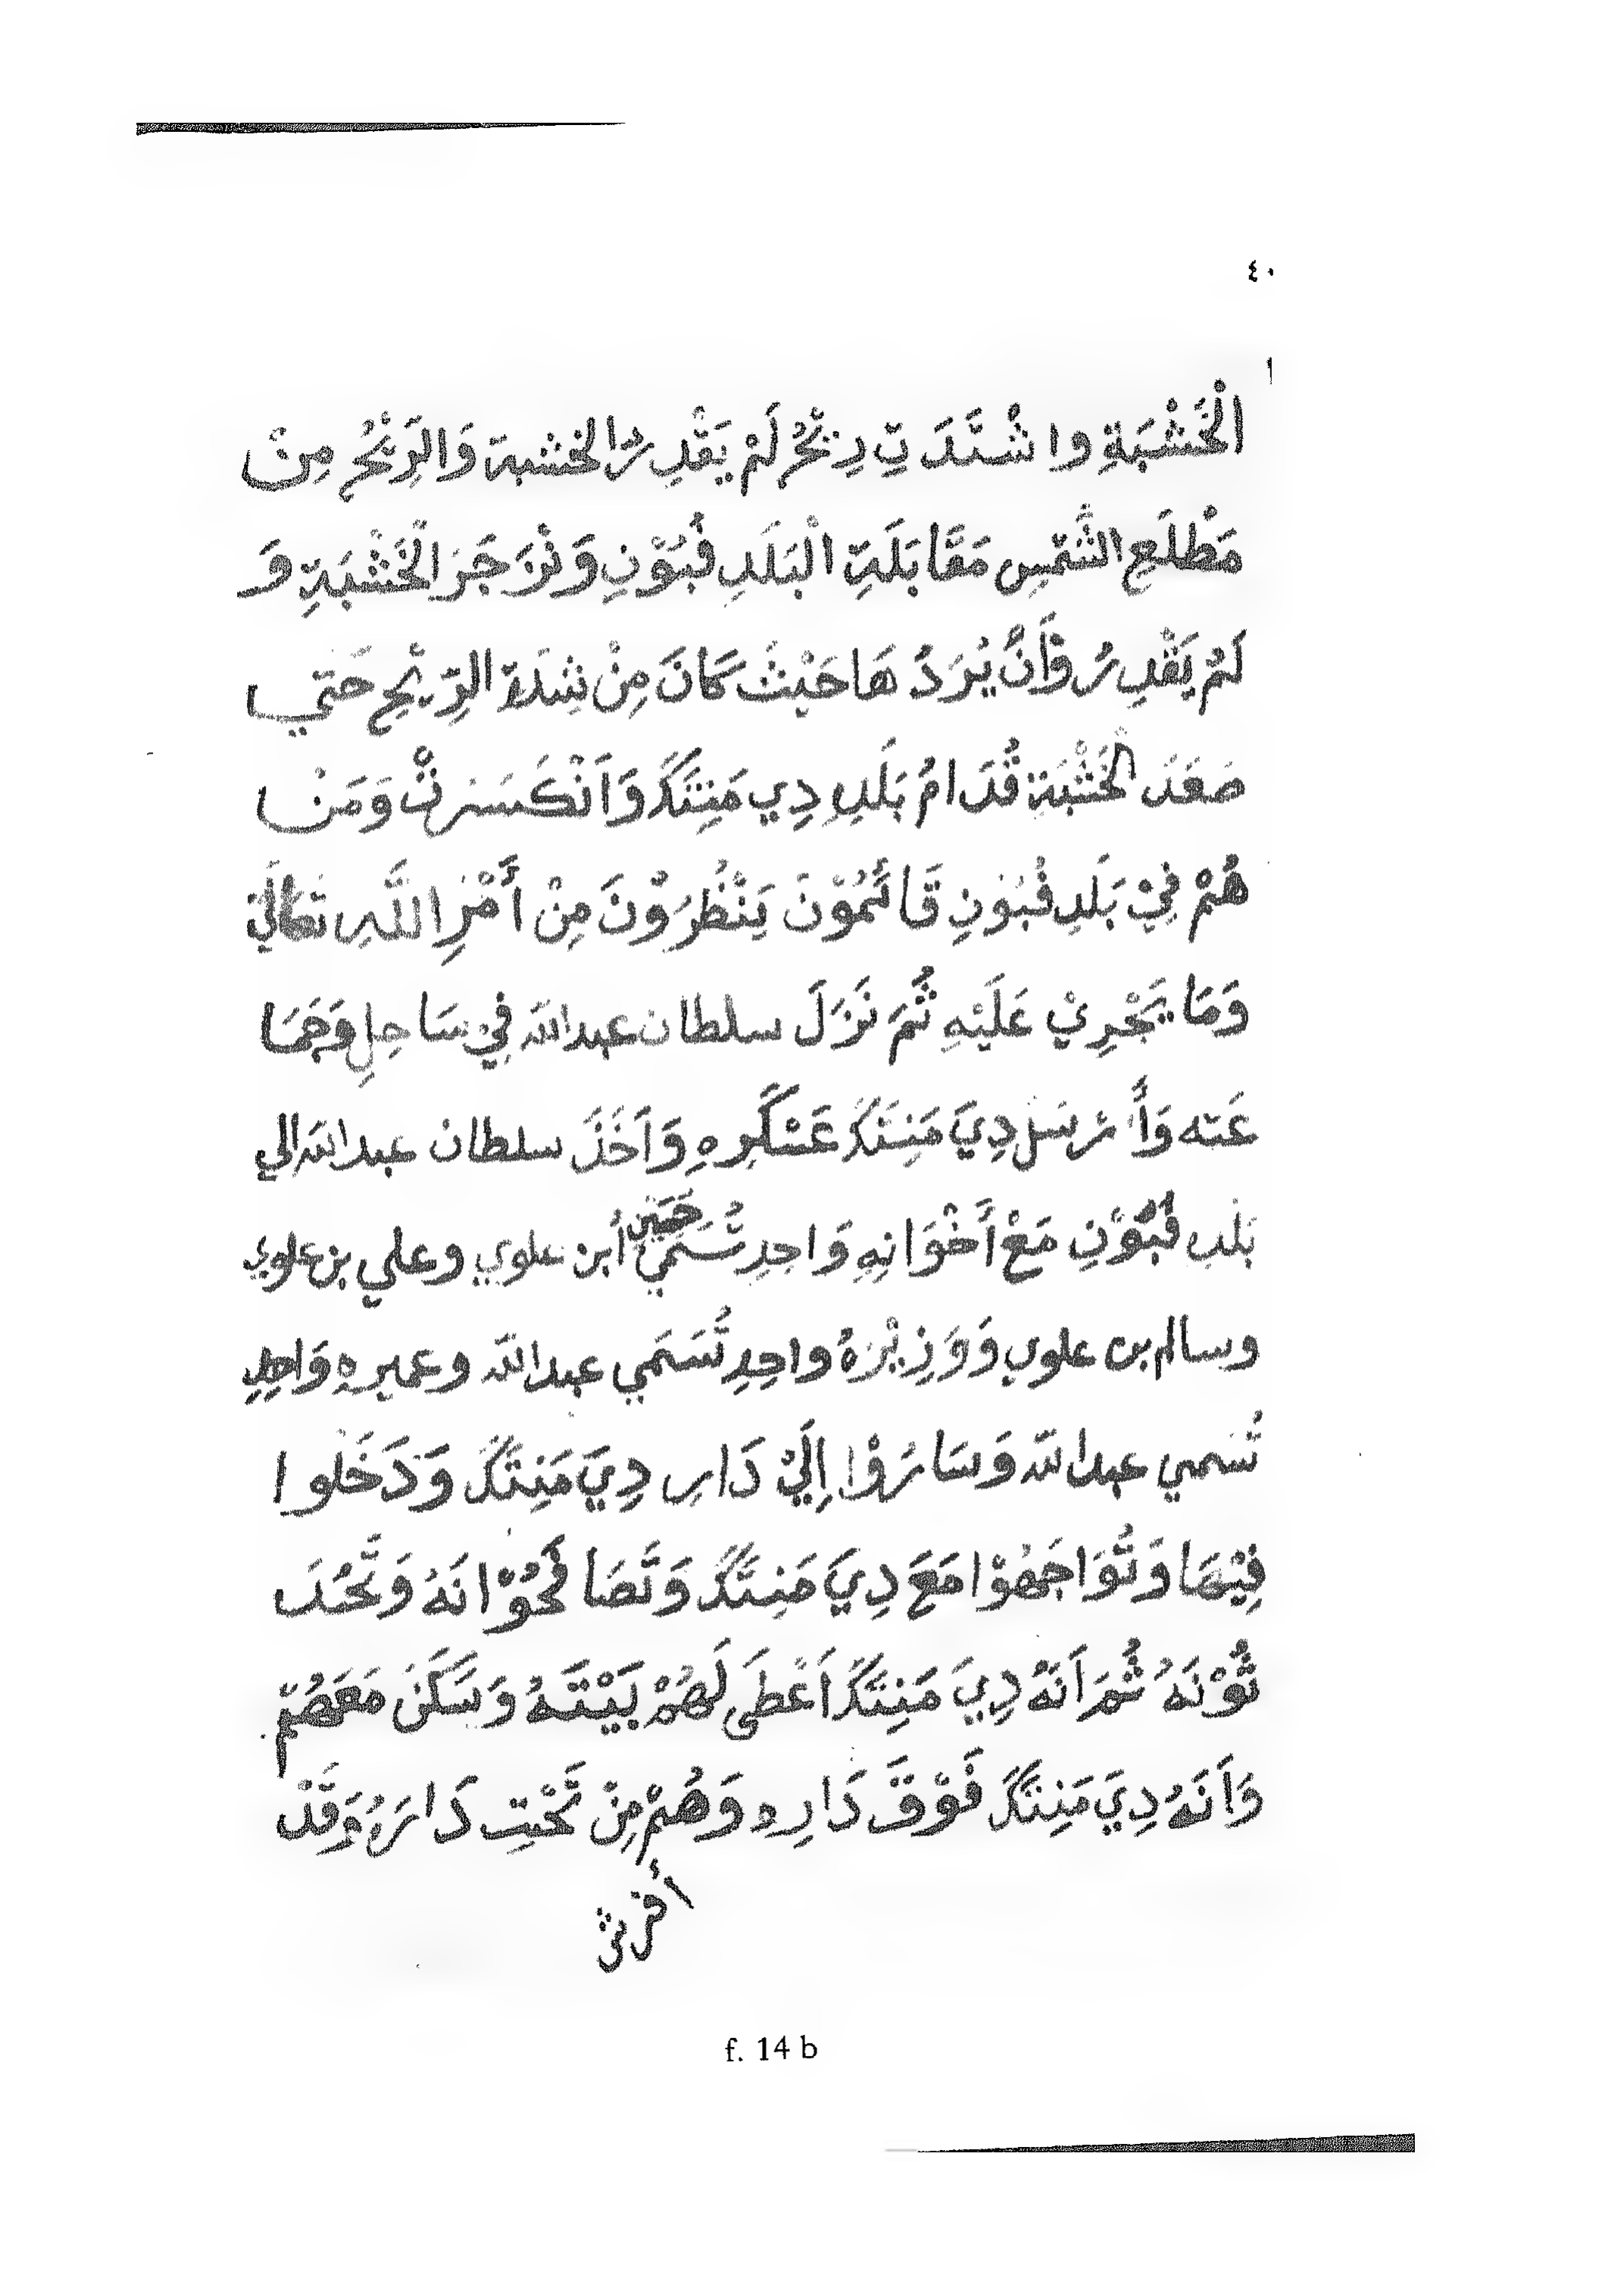 ٤٠
الْخَشْبَةِ واشْتَدَتِ رِيْحُ لَمْ يَقْدِرُ الخشبة وَالرَيْحُ مِنْ
مَطْلَعِ الشَّمْسِ مَقَابَلَةِ الْبَلَدِ فُبُوْنِ وَنْزَجَرَ الْخَشْبَةِ وَ
لَمْ يَقْدِرُ وْأَنْ يُرَدُ هَا حَيْثَ كَانَ مِنْ شِدَةِ الرِّيْحِ حَتّي
صَعَدَ الْخَشْبَة قُدَامُ بَلَدِ دِي مَنِتَكَ وَاَنْكَسَرتْ وَمَنْ
هُمْ فِيْ بَلَدِ فُبُونِ قَائمُوْنَ يَنْظُرُوْنَ مِنْ أَمْرِ اللَّهِ تَعَالَي
وَمَا يَجْرِيْ عَلَيْهِ ثُمَ نَزَلَ سلطان عبدالله فِي سَاحِلِ وَجَمَا
عَته وَأَرْسَل دِيَ مَنِتَكَ عَسْكَرِهِ وَاَخَذَ سلطان عبدالله الي
بَلد فُبُوْنِ مَعْ أَخْوَانِهِ وَاحِدِ تُسَمَي حُسَيْن أبن علوي وعلي بن علوي
وسالم بن علوي وَوَزِيْرَهُ واحِدِ تُسَمَي عبدالله وعميرهِ وَاحِدِ
تُسَمي عبدالله وَسَارُوْا اِلَيْ دَارِ دِيَ مَنِتَكَ وَدَخَلوا
فِيْهَا وَتُوَاجَهُوْا مَعَ دِيَ مَنِتَكَ وَتَصَافَحُوْانَهُ وَتَحُدَ
ثُوْنَهُ ثُمَ اَنَهُ دِيَ مَنِتَكَ اَعْطَى لَهُمْ بَيْتَهُ وَسَكَنَ مَعَهُمْ
وَاَنَهُ دِيَ مَنِتَكَ فَوْقَ دَارِهِ وَهُمْ مِنْ تَحْتِ دَارَهُ وَقَدْ
f. 14 b